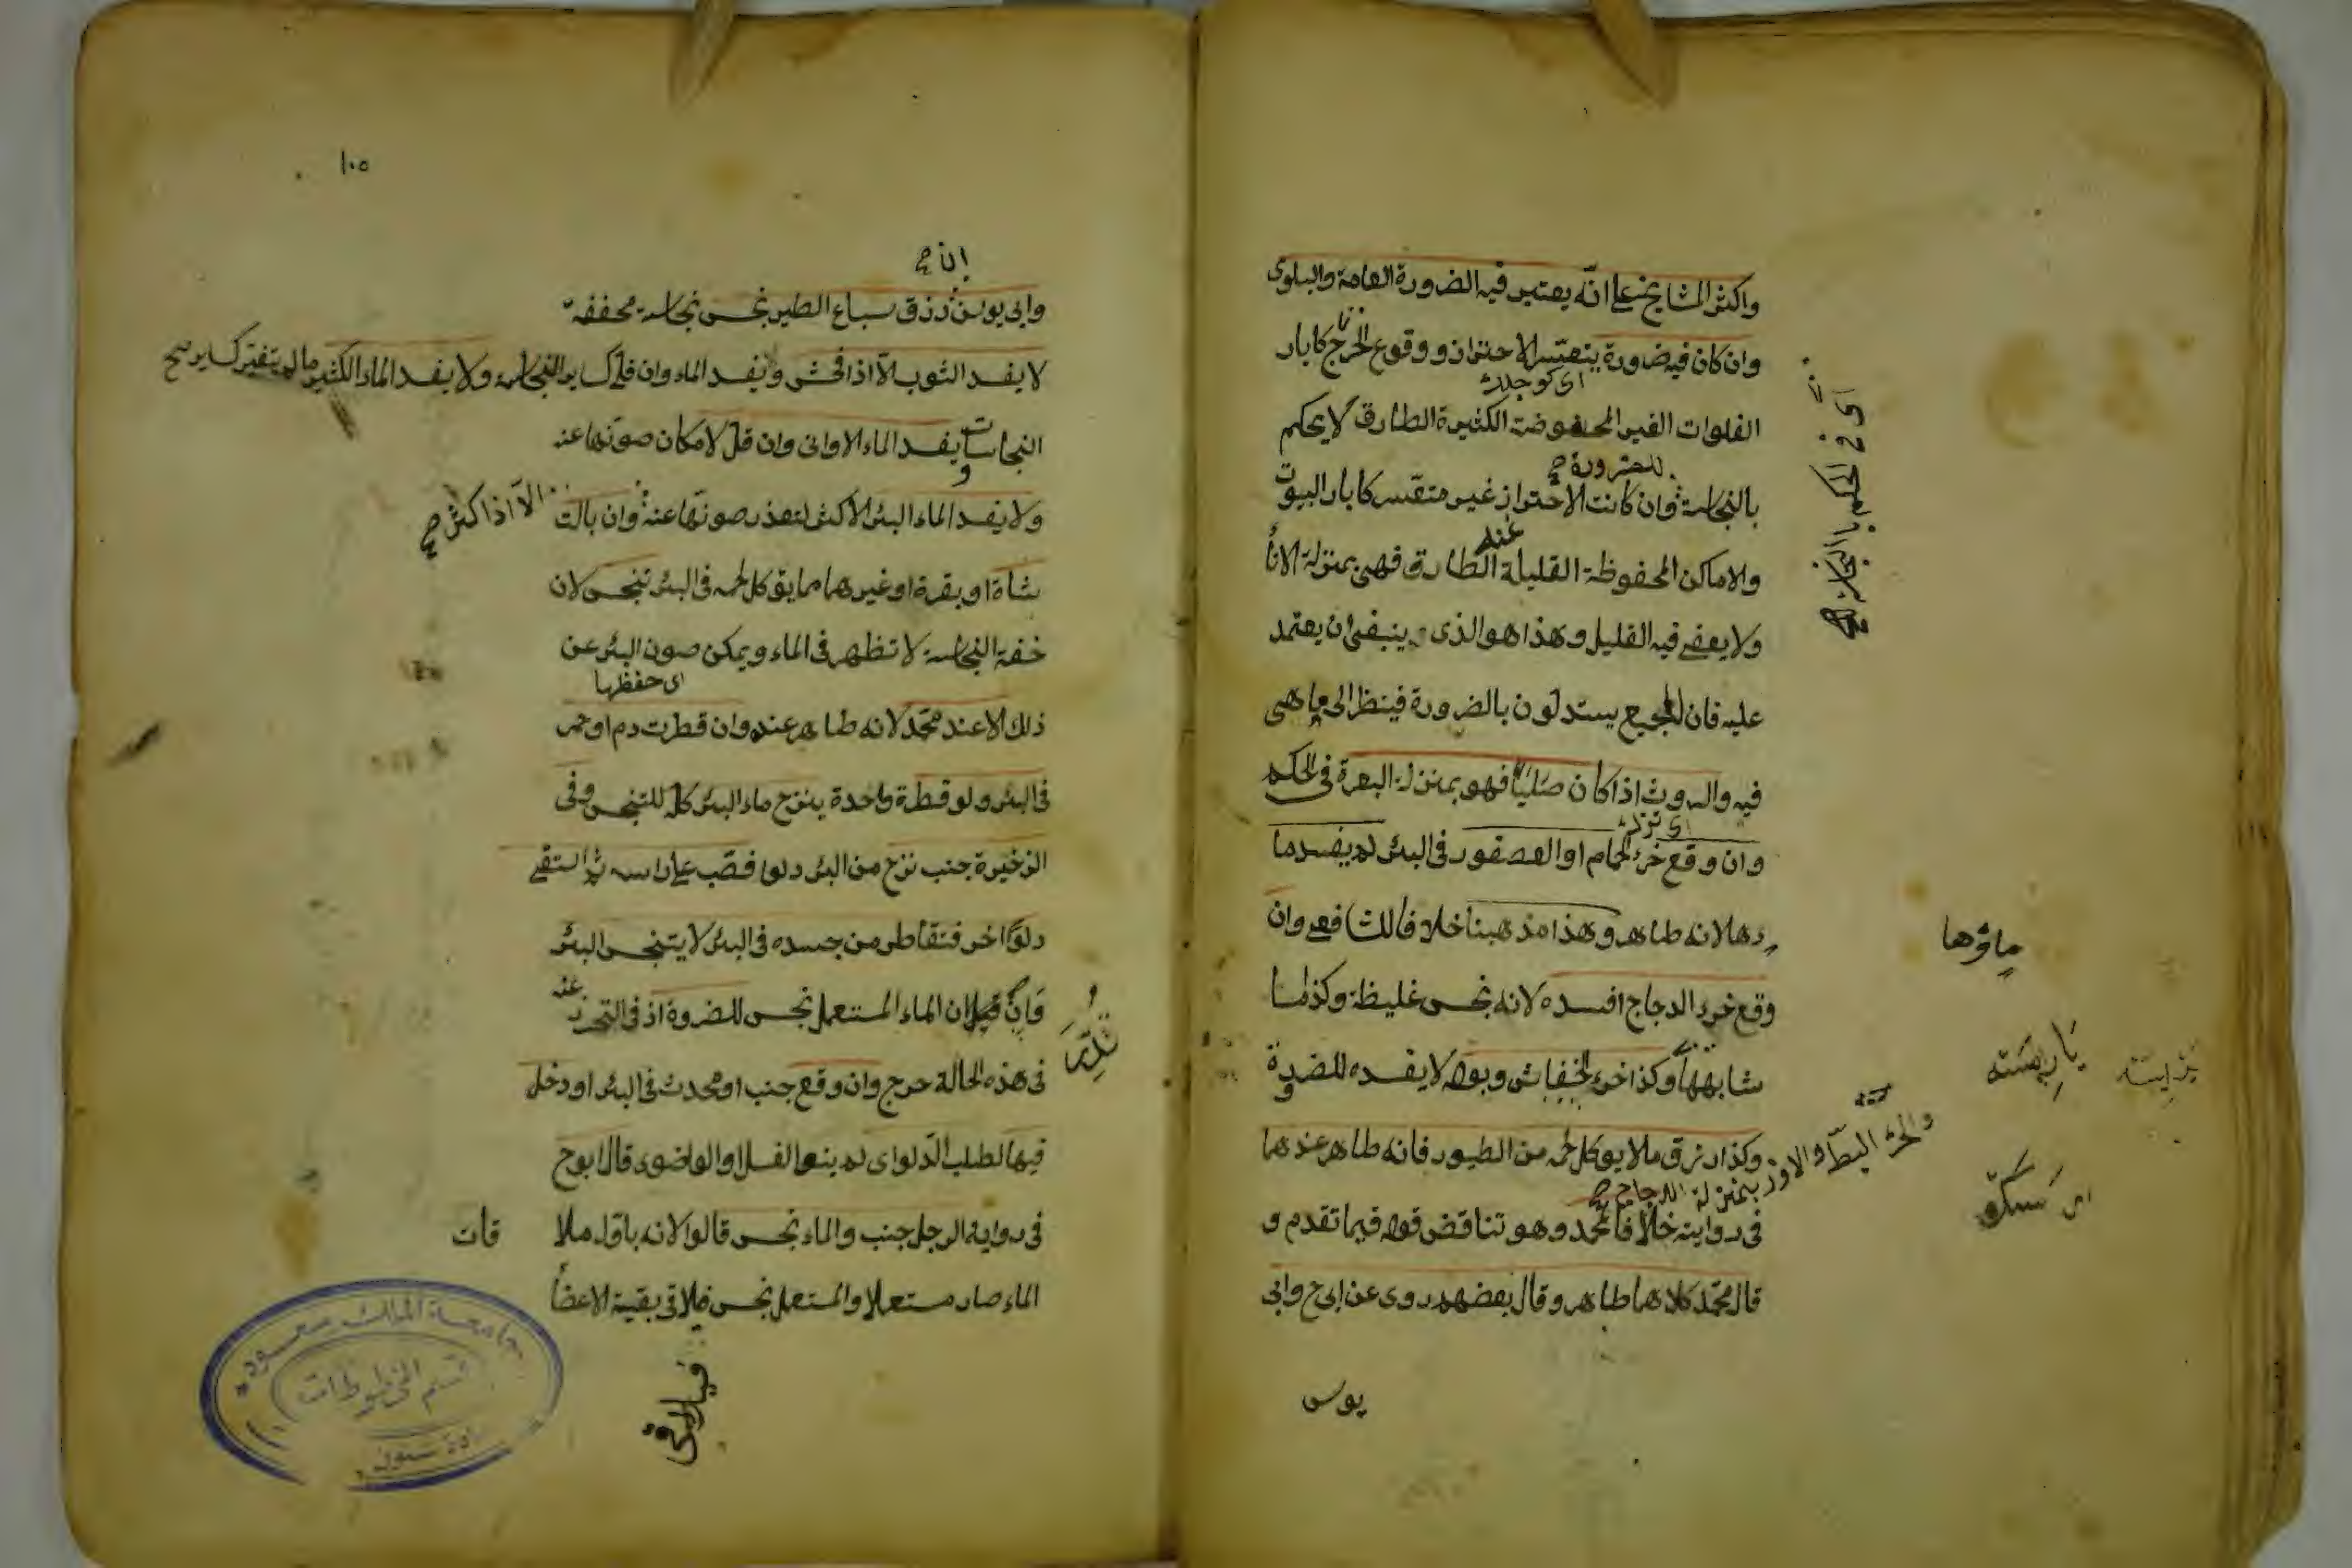 واكثر المشايخ على انّه يعتبر فيه الضرورة العامة والبلوى
وان كان فيه ضرورة يتعسر الاحتراز ووقوع الحرج كابار
اى كوجلدت
الفلوات الغير المحفوضة الكثيرة الطارق لا يحكم
للضرورة صح
بالنجاسة وان كانت الاحتراز غير متعسر كابار البيوت
عنه
والاماكن المحفوظة القليلة الطارق فهى بمنزلة الانأ
ولا يعفى فيه القليل وهذا هو الذى ينبغى ان يعتمد
عليه فان الجميع يستدلون بالضرورة فينظر الى ما هى
فيه والروث اذا كان صلبا فهو بمنزلة البعرة فى الحكم
وان وقع خرء الحمام او العصفور فى البئر لم يفسد ما
ءها لانه طاهر وهذا مذهبنا خلافا للشافعى وان
وقع خرء الدجاج افسده لانه نجس غليظة وكذا ما
شابهها وكذا خرء الخفاش وبوله لا يفسده للضرورة
وكذا زرق ملا يوكل لحمه من الطيور فانه طاهر عندهما
فى رواية خلافا لمحمد وهو تناقض قوله فيما تقدم و
قال محمّد كلاهما طاهر وقال بعضهم روى عن ابى ح وابى
يوس
اى فى الحكم بالنجاسة صح
ماؤها
والخرء البطّ والاوز بمنزلة الدجاج صح
١٠٥
ان صح
وابى يوسف زرق سباع الطير نجس نجاسة مخففة
لا يفسد الثوب الّا اذا فحش ويفسد الماء وان قل كساير النجاسة ولا يفسد الماء الكثير ما لم يتغير كساير صح
النجاسات ويفسد الماء الاوانى وان قلّ لامكان صونها عنه
ولا يفسد الماء البئر الاكثر لتعذر صونها عنه وان بالت
الّا اذا كثر صح
شاة او بقرة او غيرهما مما يؤكل لحمه فى البئر تنجس لان
خفة النجاسة لا تظهر فى الماء ويمكن صون البئر عن
اى حفظها
ذلك الا عند محمّد لانه طاهر عنده وان قطرت دم او خمر
فى البئر ولو قطرة واحدة ينزح ماء البئر كله للتنجس وفى
الذخيرة جنب نزح من البئر دلوا فصّب على راسه ثم استقى
دلوًا اخر فتقاطر من جسده فى البئر لا يتنجس البئر
وَاِنْ قيل ان الماء المستعمل نجس للضروة اذ فى التحرز عنه
فى هذه الحالة حرج وان وقع جنب او محدث فى البئر او دخل
فيها لطلب الدّلو اى لم ينو الغسل او الوضوء قال ابو ح
فى رواية الرجل جنب والماء نجس قالوا لانه باوّل ملا قات
الماء صار مستعملا والمستعمل نجس فلاقى بقية الاعضأ
جامعة الملك سعود
قسم المخطوطات